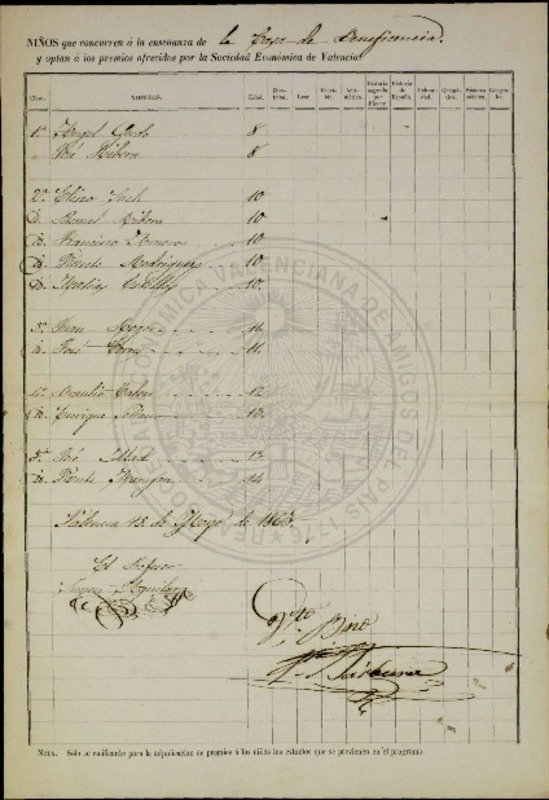 NIÑOS que concurren á la enseñanza de la Casa de Beneficencia.
y optan á los premios ofrecidos por la Sociedad Económica de Valencia.
Clase. NOMBRES. Edad. Doctrina. Leer Escribir. Aritmética. Historia sagrada por Fleury. Historia de España. Urbanidad. Gramática. Sistema métrico. Geografía.
1.ª Angel 8
" José Ribera 8
2.ª Eliseo 10
id. Manuel Ribera 10
id. Francisco 10
id. Vicente Rodriguez 10
id. Matias 10
3.ª Juan 11
id. José 11
4.ª Braulio 12
id. Enrique 13
5.ª José 12
id. Vicente 14
Valencia 15 de Mayo de 1865.
El Profesor
Aguilar
Vto Bno
NOTA. Solo se calificarán para la adjudicacion de premios á los niños los estudios que se previenen en el programa.
REAL SOCIEDAD ECONÓMICA VALENCIANA DE AMIGOS DEL PAÍS 1776